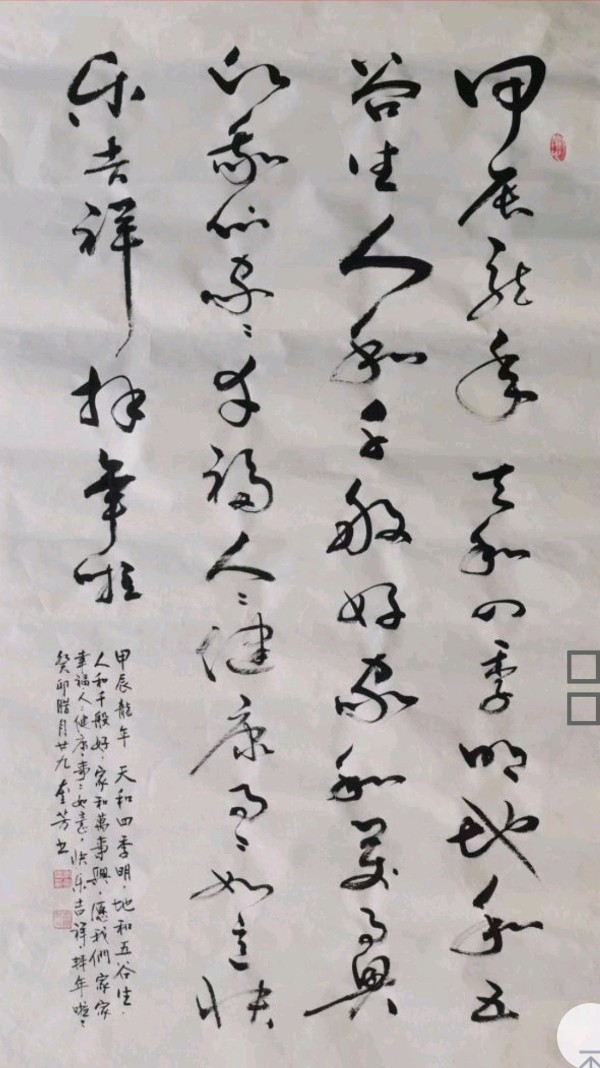 甲辰龙年天和四季明地和五
谷生人和千般好家和万事興
我们家〻幸福人〻健康事〻如意快
乐吉祥拜年啦
甲辰龍年 天和四季明，地和五谷生，
人和千般好，家和萬事興，應我們家家
幸福人〻健康事〻如意，快乐吉祥，拜年啦〻
癸卯腊月廿九 奎芳书